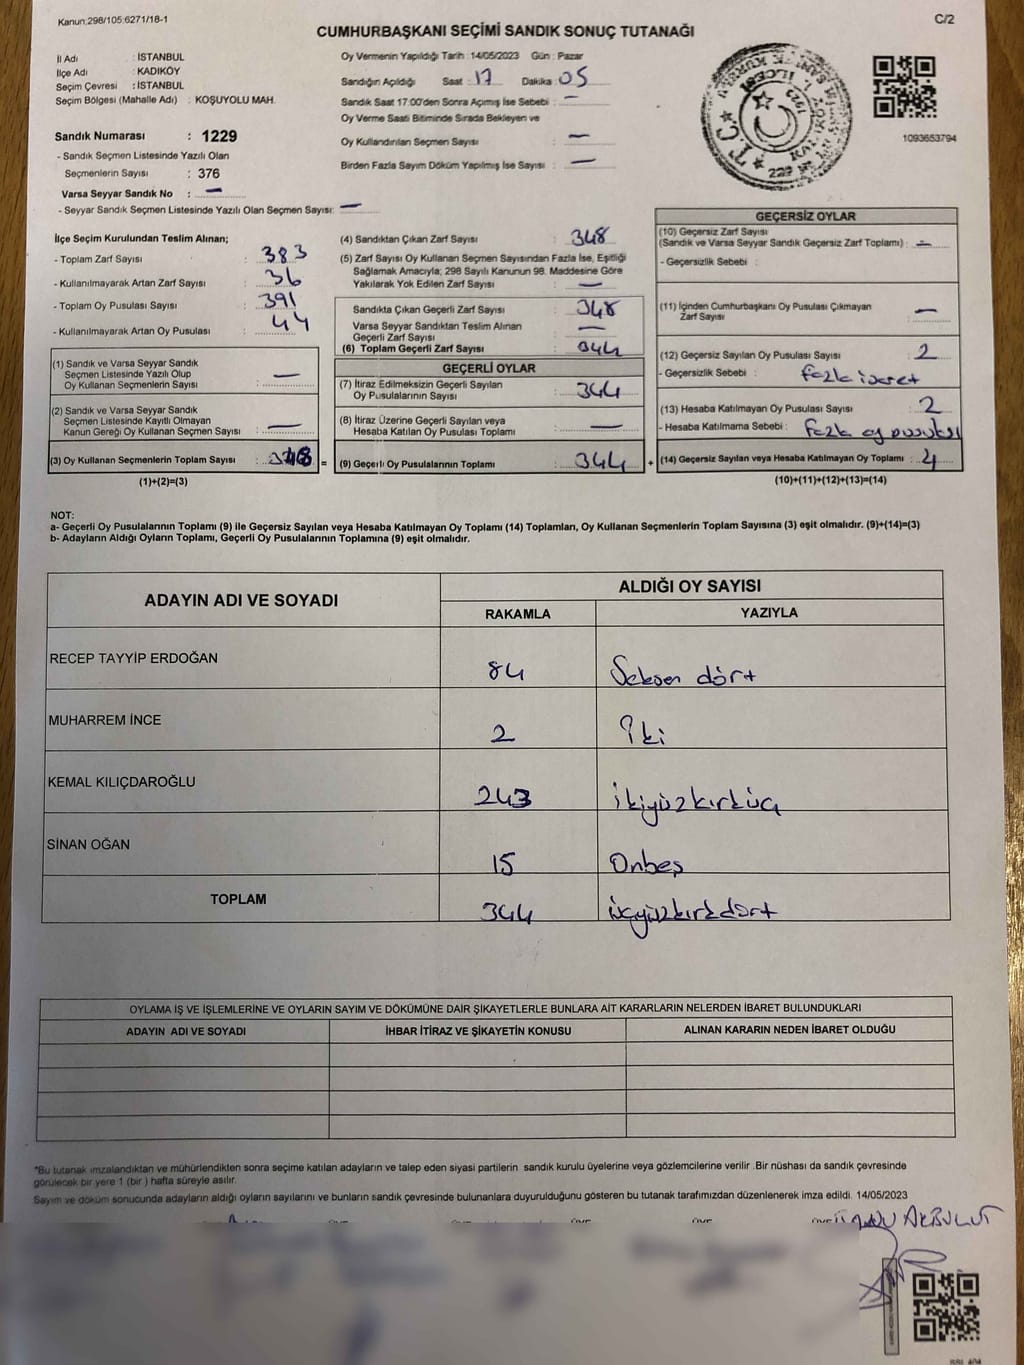 Kanun:298/105:6271/18-1
C/2
CUMHURBAŞKANI SEÇİMİ SANDIK SONUÇ TUTANAĞI
İl Adı : İSTANBUL
İlçe Adı : KADIKÖY
Seçim Çevresi : İSTANBUL
Seçim Bölgesi (Mahalle Adı) : KOŞUYOLU MAH.
Sandık Numarası : 1229
- Sandık Seçmen Listesinde Yazılı Olan
Seçmenlerin Sayısı : 376
Varsa Seyyar Sandık No : —
- Seyyar Sandık Seçmen Listesinde Yazılı Olan Seçmen Sayısı: —
Oy Vermenin Yapıldığı Tarih :14/05/2023 Gün : Pazar
Sandığın Açıldığı Saat : 17 Dakika : 05
Sandık Saat 17:00'den Sonra Açımış İse Sebebi : —
Oy Verme Saati Bitiminde Sırada Bekleyen ve
Oy Kullandırılan Seçmen Sayısı : —
Birden Fazla Sayım Döküm Yapılmış İse Sayısı : —
1093653794
İlçe Seçim Kurulundan Teslim Alınan;
- Toplam Zarf Sayısı : 383
- Kullanılmayarak Artan Zarf Sayısı : 36
- Toplam Oy Pusulası Sayısı : 391
- Kullanılmayarak Artan Oy Pusulası : 44
(1) Sandık ve Varsa Seyyar Sandık
Seçmen Listesinde Yazılı Olup
Oy Kullanan Seçmenlerin Sayısı : —
(2) Sandık ve Varsa Seyyar Sandık
Seçmen Listesinde Kayıtlı Olmayan
Kanun Gereği Oy Kullanan Seçmen Sayısı : —
(3) Oy Kullanan Seçmenlerin Toplam Sayısı : 348 =
(1)+(2)=(3)
(4) Sandıktan Çıkan Zarf Sayısı : 348
(5) Zarf Sayısı Oy Kullanan Seçmen Sayısından Fazla İse, Eşitliği
Sağlamak Amacıyla; 298 Sayılı Kanunun 98. Maddesine Göre
Yakılarak Yok Edilen Zarf Sayısı : —
Sandıkta Çıkan Geçerli Zarf Sayısı : 348
Varsa Seyyar Sandıktan Teslim Alınan
Geçerli Zarf Sayısı : —
(6) Toplam Geçerli Zarf Sayısı : 344
GEÇERLİ OYLAR
(7) İtiraz Edilmeksizin Geçerli Sayılan
Oy Pusulalarının Sayısı : 344
(8) İtiraz Üzerine Geçerli Sayılan veya
Hesaba Katılan Oy Pusulası Toplamı : —
(9) Geçerli Oy Pusulalarının Toplamı : 344 +
GEÇERSİZ OYLAR
(10) Geçersiz Zarf Sayısı
(Sandık ve Varsa Seyyar Sandık Geçersiz Zarf Toplamı) : —
- Geçersizlik Sebebi :
(11) İçinden Cumhurbaşkanı Oy Pusulası Çıkmayan
Zarf Sayısı : —
(12) Geçersiz Sayılan Oy Pusulası Sayısı : 2
- Geçersizlik Sebebi : fazla işaret
(13) Hesaba Katılmayan Oy Pusulası Sayısı : 2
- Hesaba Katılmama Sebebi : fazla oy pusulası
(14) Geçersiz Sayılan veya Hesaba Katılmayan Oy Toplamı : 4
(10)+(11)+(12)+(13)=(14)
NOT:
a- Geçerli Oy Pusulalarının Toplamı (9) ile Geçersiz Sayılan veya Hesaba Katılmayan Oy Toplamı (14) Toplamları, Oy Kullanan Seçmenlerin Toplam Sayısına (3) eşit olmalıdır. (9)+(14)=(3)
b- Adayların Aldığı Oyların Toplamı, Geçerli Oy Pusulalarının Toplamına (9) eşit olmalıdır.
ADAYIN ADI VE SOYADI
ALDIĞI OY SAYISI
RAKAMLA YAZIYLA
RECEP TAYYİP ERDOĞAN 84 Seksen dört
MUHARREM İNCE 2 İki
KEMAL KILIÇDAROĞLU 243 ikiyüzkırküç
SİNAN OĞAN 15 Onbeş
TOPLAM 344 üçyüzkırkdört
OYLAMA İŞ VE İŞLEMLERİNE VE OYLARIN SAYIM VE DÖKÜMÜNE DAİR ŞİKAYETLERLE BUNLARA AİT KARARLARIN NELERDEN İBARET BULUNDUKLARI
ADAYIN ADI VE SOYADI İHBAR İTİRAZ VE ŞİKAYETİN KONUSU ALINAN KARARIN NEDEN İBARET OLDUĞU
*Bu tutanak imzalandıktan ve mühürlendikten sonra seçime katılan adayların ve talep eden siyasi partilerin sandık kurulu üyelerine veya gözlemcilerine verilir .Bir nüshası da sandık çevresinde
görülecek bir yere 1 (bir ) hafta süreyle asılır.
Sayım ve döküm sonucunda adayların aldığı oyların sayılarını ve bunların sandık çevresinde bulunanlara duyurulduğunu gösteren bu tutanak tarafımızdan düzenlenerek imza edildi. 14/05/2023
AKBULUT